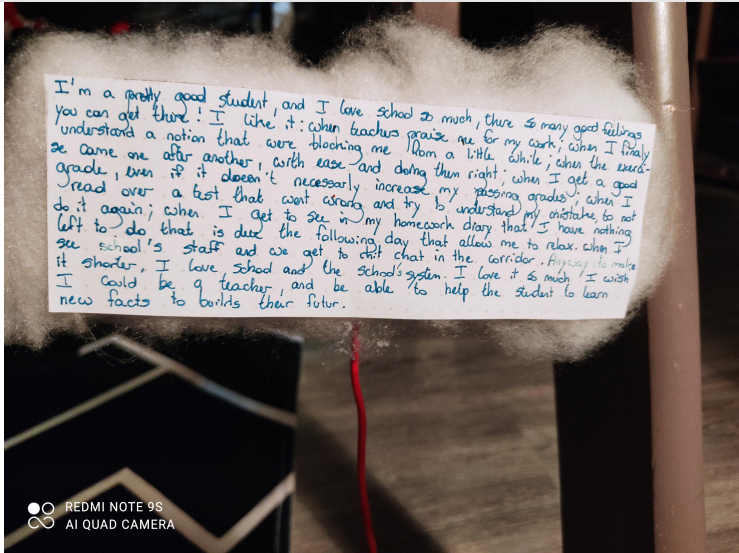 I'm a pretty good student, and I love school so much, there so many good feelings
you can get there! I like it: when teachers praise me for my work; when I finaly
understand a notion that were blocking me from a little while; when the exerci-
se came one after another, with ease and doing them right; when I get a good
grade, even if it doesn't necessarly increase my passing grades; when I
read over a test that went wrong and try to understand my mistake, to not
do it again; when I get to see in my homework diary that I have nothing
left to do that is due the following day that allow me to relax. when I
see school's staff and we get to chit chat in the corridor. Anyway to make
it shorter, I love, school and the school's system. I love it so much I wish
I could be a teacher, and be able to help the student to learn
new facts to builds their futur.
REDMI NOTE 9S
AI QUAD CAMERA